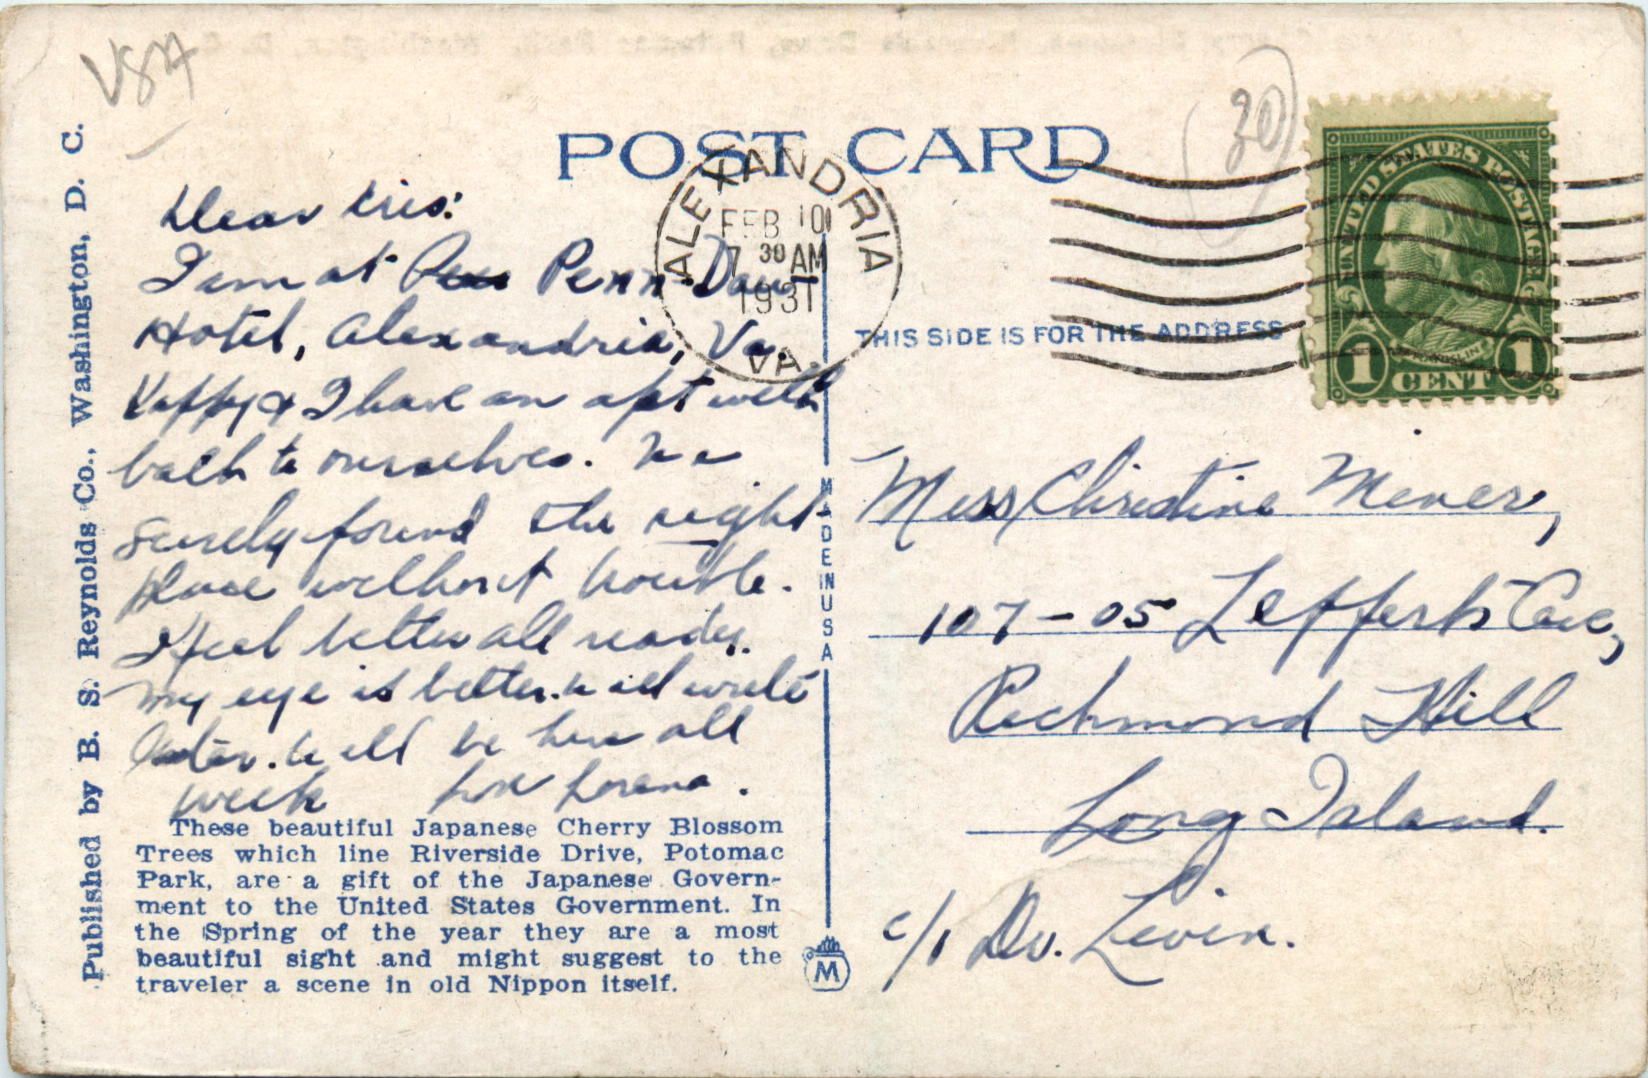 USA
30
POST CARD
ALEXANDRIA
FEB 10
7 30 AM
1931
VA.
THIS SIDE IS FOR THE ADDRESS
UNITED STATES POSTAGE
FRANKLIN
1 CENT 1
Dear Cris:
I am at Penn-Daw
Hotel, Alexandria, Va.
Kaffy & I have an apt with
bath to ourselves. We
surely found the right
place without trouble.
I feel better all ready.
My eye is better. Will write
later. Will be here all
week Lorena.
These beautiful Japanese Cherry Blossom
Trees which line Riverside Drive, Potomac
Park, are a gift of the Japanese Govern-
ment to the United States Government. In
the Spring of the year they are a most
beautiful sight and might suggest to the
traveler a scene in old Nippon itself.
Published by B. S. Reynolds Co., Washington, D. C.
MADE IN USA
M
Miss Christine Mener,
107-05 Lefferts Ave,
Richmond Hill
Long Island.
c/o Dr. Levin.